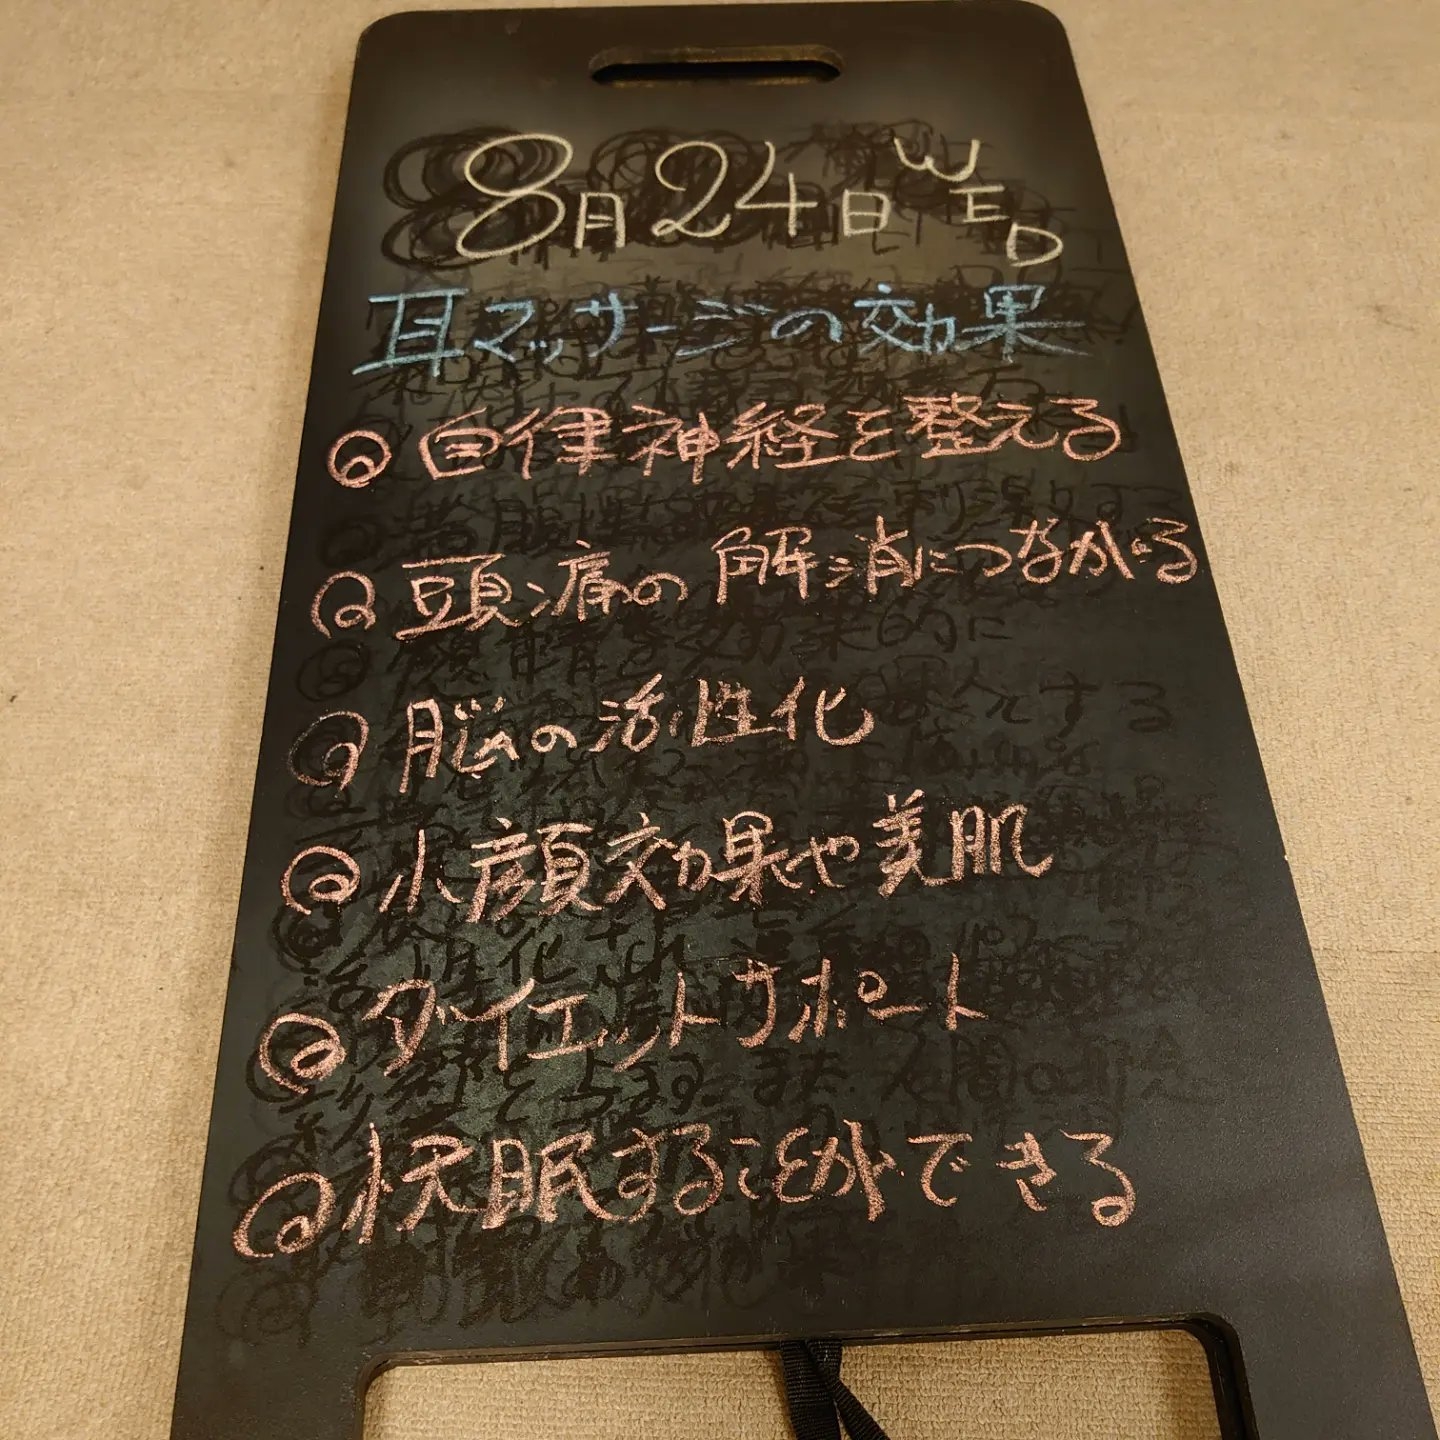 8月24日 WED
耳マッサージの効果
自律神経を整える
頭痛の解消につながる
脳の活性化
小顔効果や美肌
ダイエットサポート
快眠することができる